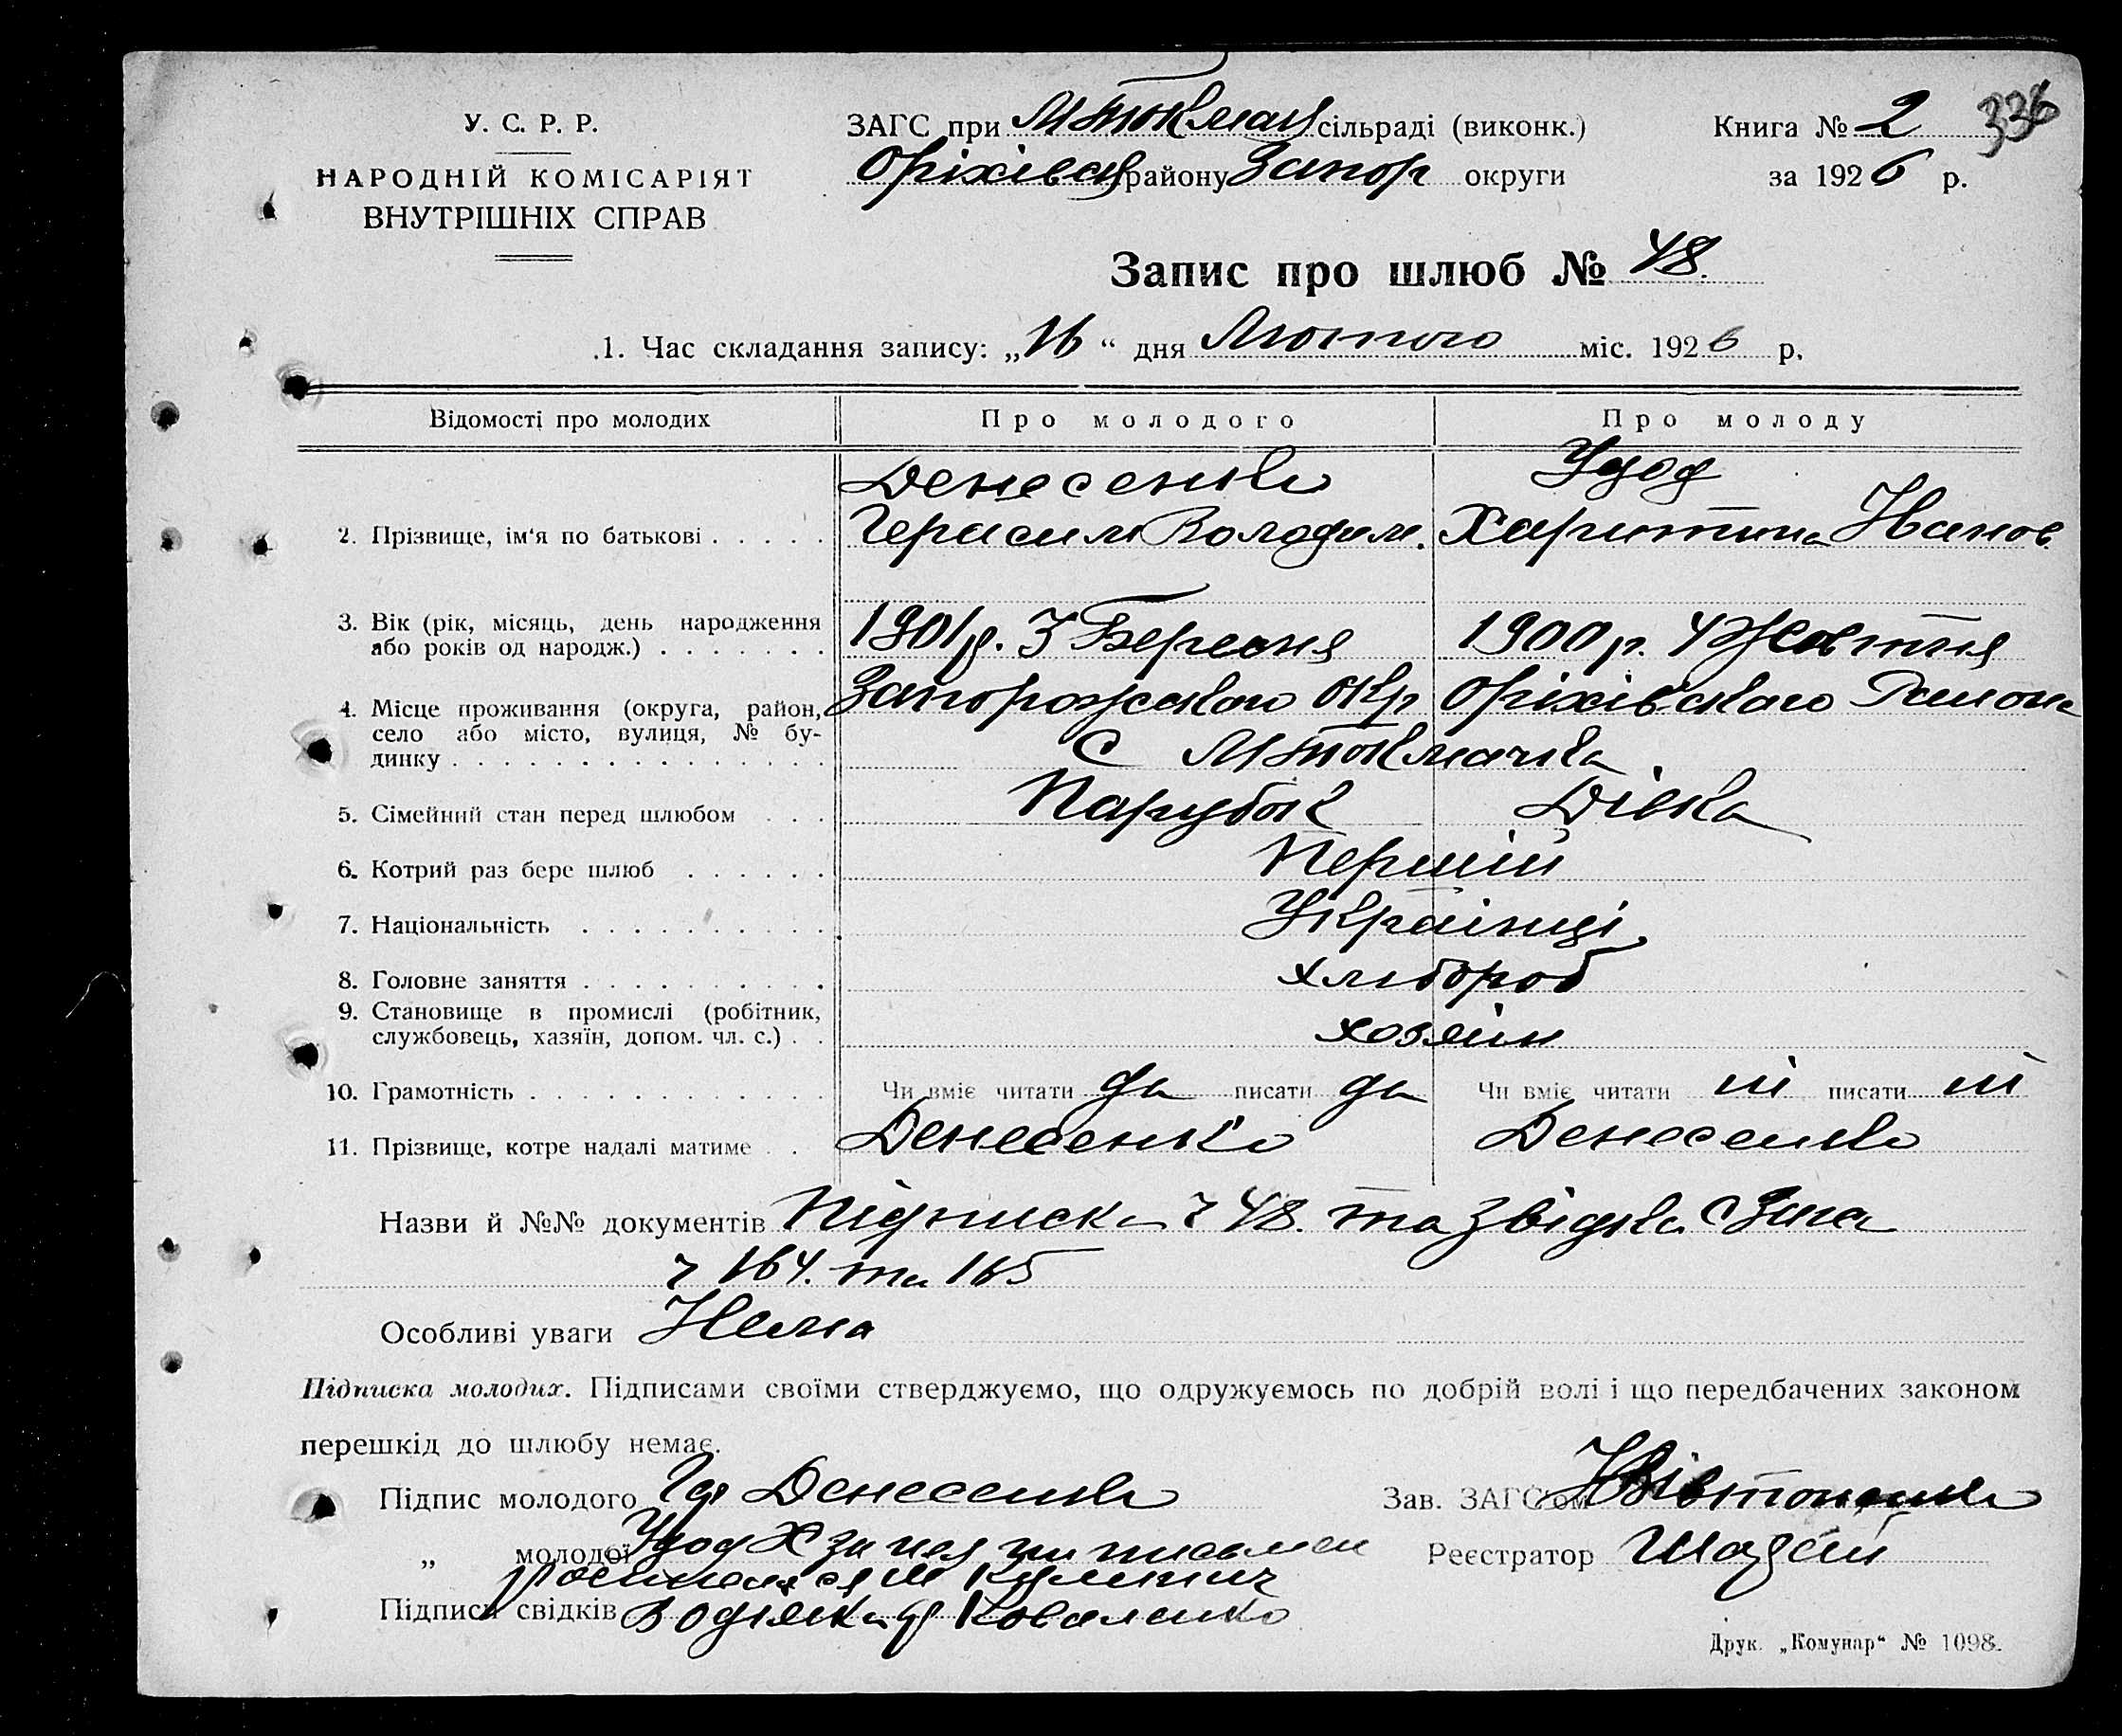 336
У. С. Р. Р.
НАРОДНІЙ КОМІСАРІЯТ
ВНУТРІШНІХ СПРАВ
ЗАГС при МТокмац сільраді (виконк.)
Оріхівськ району Запор округи
Книга № 2
за 1926 р.
Запис про шлюб № 48.
1. Час складання запису: „16“ дня Лютого міс. 1926 р.
Відомості про молодих
Про молодого
Про молоду
2. Прізвище, ім'я по батькові
Денесенко
Герасим Володим.
Удод
Харитина Иванов
3. Вік (рік, місяць, день народження
або років од народж.)
1901р. 3 Березня
1900 р. 4 Жовтня
4. Місце проживання (округа, район,
село або місто, вулиця, № бу-
динку
Запорожского Окр Оріхівского Району
С МТокмачка
5. Сімейний стан перед шлюбом
Парубок
Дівка
6. Котрий раз бере шлюб
Перший
7. Національність
Українці
8. Головне заняття
хлибороб
9. Становище в промислі (робітник,
службовець, хазяїн, допом. чл. с.)
хозяин
10. Грамотність
Чи вміє читати да писати да
Чи вміє читати ні писати ні
11. Прізвище, котре надалі матиме
Денесенко
Денесенко
Назви й №№ документів Підписка ч 48. та Звідка
ч 164. та 165
Особливі уваги Нема
Підписка молодих. Підписами своїми стверджуємо, що одружуємось по добрій волі і що передбачених законом
перешкід до шлюбу немає.
Підпис молодого Денесенко
Зав. ЗАГС'ом
„ молодої Удод Х за нея
Реєстратор
Підписи свідків Водяжка Коваленко
Друк. „Комунар“ № 1098.